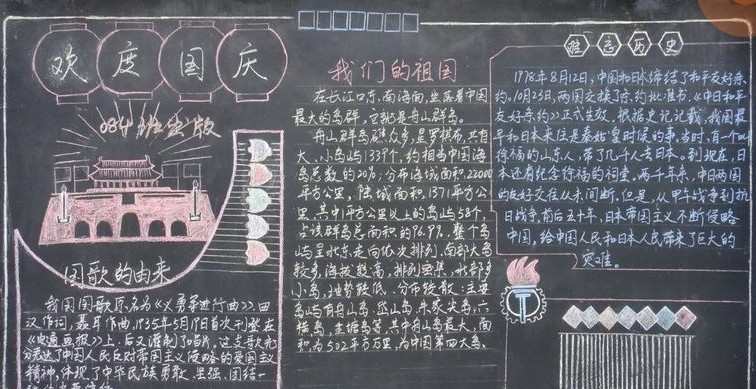 欢度国庆
084班出版
国歌的由来
我国国歌原名为《义勇军进行曲》,田
汉作词,聂耳作曲,1935年5月19日首次刊登在
《电通画报》上,后又灌制了唱片,这支歌充
分表达了中国人民反对帝国主义侵略的爱国主义
精神,体现了中华民族勇敢、坚强、团结一
我们的祖国
在长江口东,南海面,坐落着中国
最大的岛群,它就是舟山群岛。
舟山群岛礁众多,星罗棋布,共有
大、小岛屿1339个,约相当中国海
岛总数的20%,分布海域面积22000
平方公里,陆域面积1371平方公
里。其中1平方公里以上的岛屿58个,
占该群岛总面积的96.9%。整个岛
屿呈北东走向依次排列。南部大岛
较多,海拔较高,排列密集,北部多
小岛,地势较低,分布较散;主要
岛屿有舟山岛、岱山岛、朱家尖岛、六
横岛、金塘岛等,其中舟山岛最大,面
积为502平方公里,为中国第四大岛。
胜志历史
1978年8月12日,中国和日本缔结了和平友好条
约。10月23日,两国交换了条约批准书,《中日和平
友好条约》正式生效。根据史记记载,我国最
早和日本来往是秦始皇时候的事,当时,有一个叫
徐福的山东人,带了几千人去日本。到现在,日
本还有纪念徐福的祠堂。两千年来,中日两国
的友好交往从未间断。但是,从甲午战争到抗
日战争前后五十年,日本帝国主义不断侵略
中国,给中国人民和日本人民带来了巨大的
灾难。